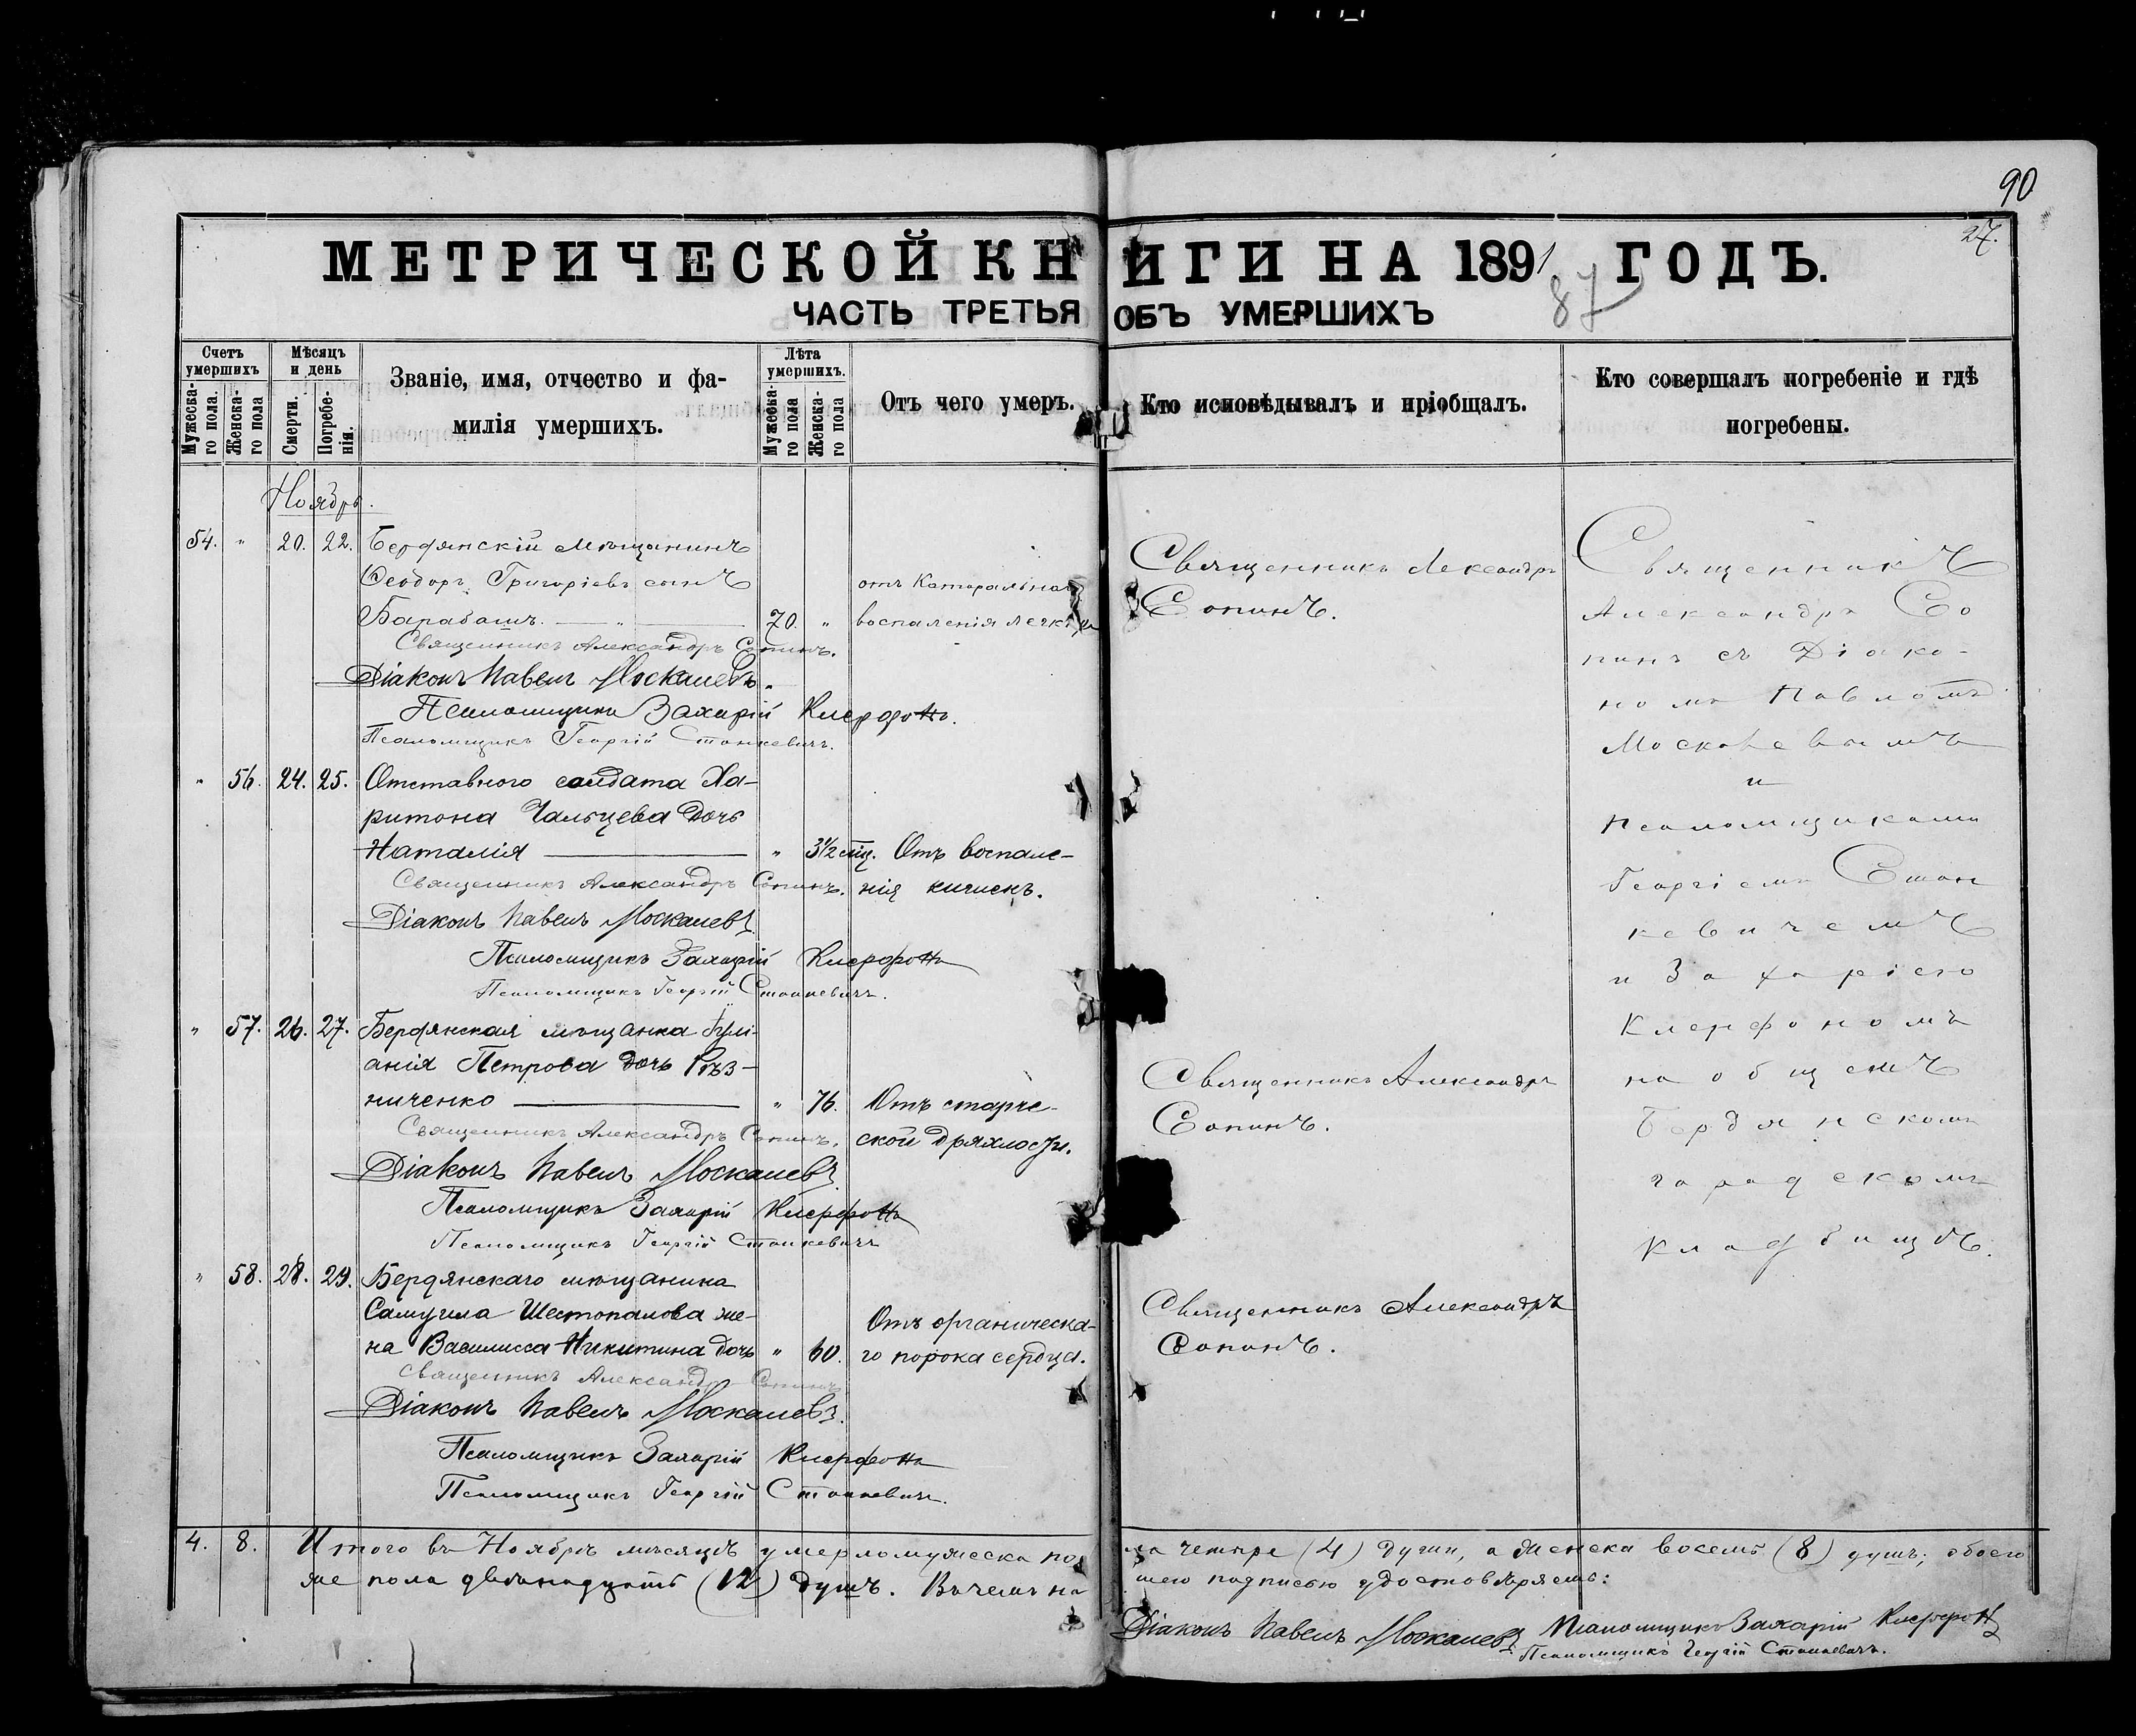 90
27.
МЕТРИЧЕСКОЙ КНИГИ НА 1891 ГОДЪ.
87
ЧАСТЬ ТРЕТЬЯ ОБЪ УМЕРШИХЪ
Счетъ умершихъ
Мужеска-го пола.
Женска-го пола
Мѣсяцъ и день
Смерти.
Погребе-нія.
Званіе, имя, отчество и фа-
милія умершихъ.
Лѣта умершихъ.
Мужеска-го пола
Женска-го пола
Отъ чего умеръ.
Кто исповѣдывалъ и пріобщалъ.
Кто совершалъ погребеніе и гдѣ
погребены.
Ноябрь.
54. " 20. 22. Бердянскій мѣщанинъ
Ѳеодоръ Григоріевъ сынъ
отъ Катаральнаго
Барабашъ. — " — 70. " воспаленія легкихъ
Священникъ Александръ Сопинъ.
Діаконъ Павелъ Москалевъ.
Псаломщикъ Захарій
Псаломщикъ Георгій Станкевичъ.
" 56. 24. 25. Отставного солдата Ха-
ритона Чальцева дочь
Наталія — " 3½ мѣц. Отъ воспале-
Священникъ Александръ Сопинъ. нія кишекъ.
Діаконъ Павелъ Москалевъ
Псаломщикъ Захарій
Псаломщикъ Георгій Станкевичъ.
" 57. 26. 27. Бердянская мѣщанка Іулі-
анія Петрова дочь Рѣз-
ниченко — " 76. Отъ старче-
Священникъ Александръ Сопинъ. ской дряхлости.
Діаконъ Павелъ Москалевъ
Псаломщикъ Захарій
Псаломщикъ Георгій Станкевичъ
" 58. 28. 29. Бердянскаго мѣщанина
Самуила Шестопалова же-
Отъ органическа-
на Василисса Никитина дочь " 60. го порока сердца.
Священникъ Александръ Сопинъ
Діаконъ Павелъ Москалевъ.
Псаломщикъ Захарій
Псаломщикъ Георгій Станкевичъ.
Священникъ Александръ
Сопинъ.
Священникъ Александръ
Сопинъ.
Священникъ Александръ
Сопинъ.
Священникъ
Александръ Со
пинъ съ Діако-
номъ Павломъ
Москалевымъ
и
Псаломщиками
Георгіемъ Стан
кевичемъ
и Захаріею
на общемъ
Бердянскомъ
городскомъ
кладбищѣ.
4. 8. Итого въ Ноябрѣ мѣсяцѣ умерло мужеска пола четыре (4) души, а женска восемь (8) душъ; обоего
же пола двѣнадцать (12) душъ. Въ чемъ нашею подписью удостовѣряемъ:
Діаконъ Павелъ Москалевъ Псаломщикъ Захарій
Псаломщикъ Георгій Станкевичъ.